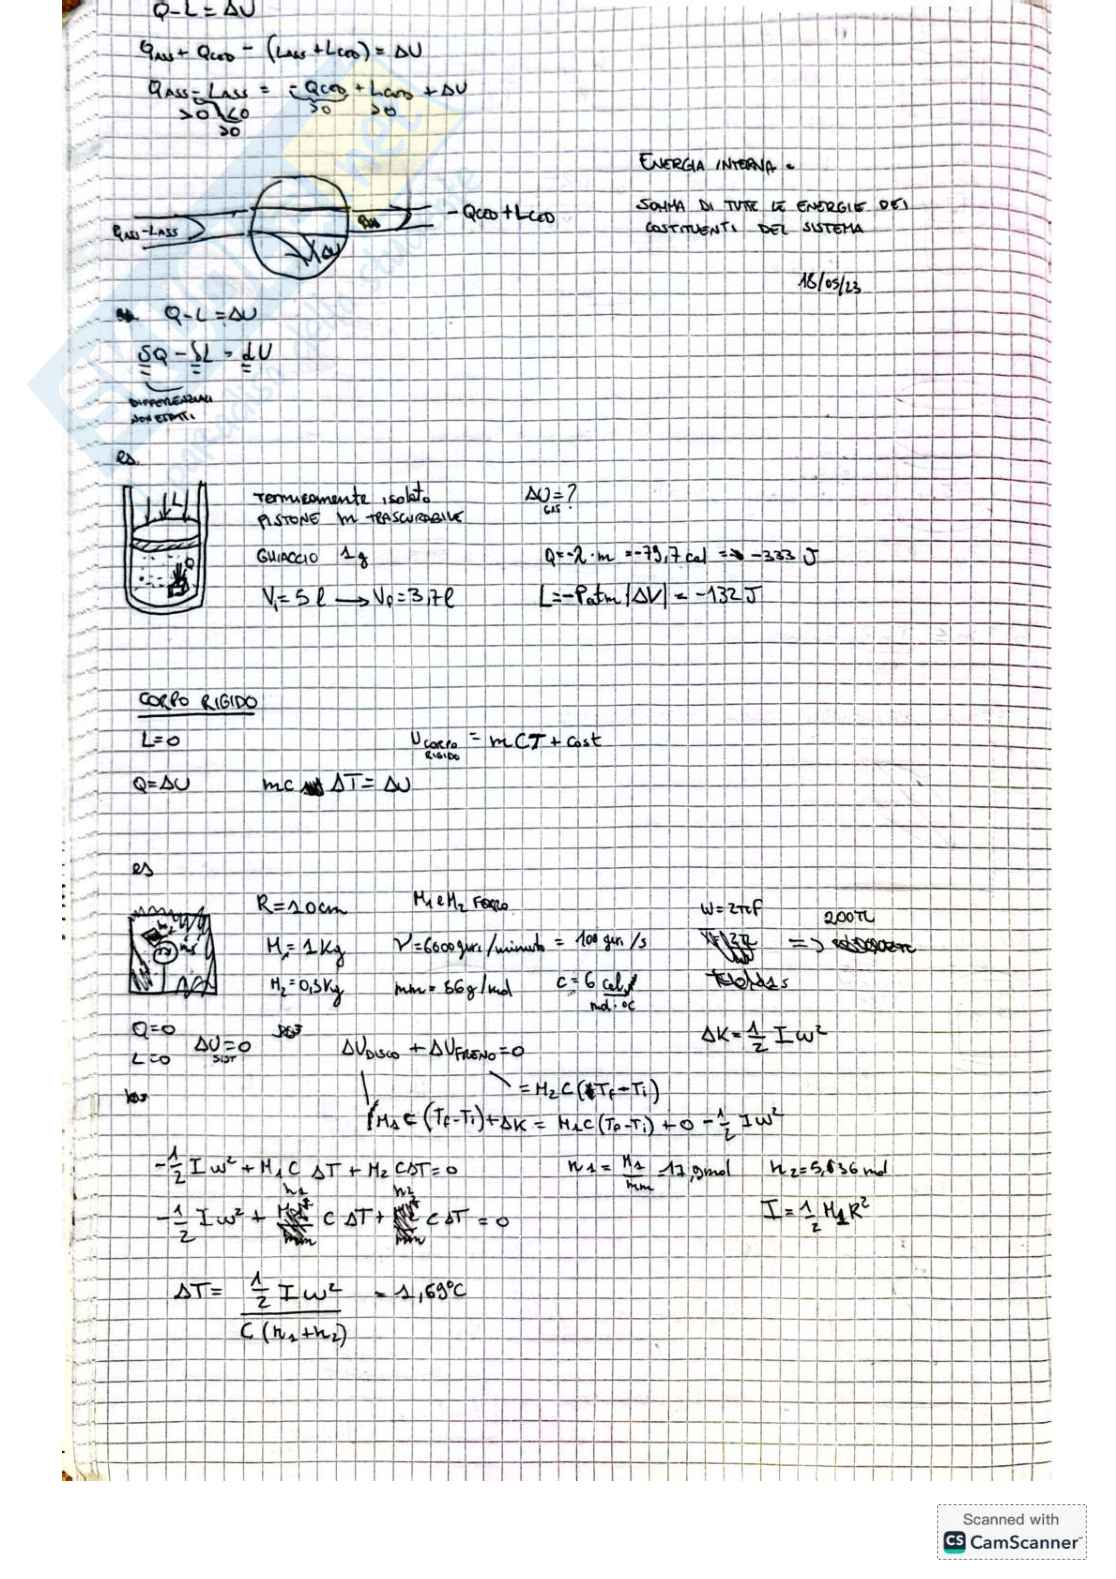 Q-L = ΔU
Qass + Qced - (Lass + Lced) = ΔU
Qass - Lass = -Qced + Lced + ΔU
>0 <0 >0 >0
>0
Qass-Lass
ΔU
-Qced + Lced
ENERGIA INTERNA =
SOMMA DI TUTE LE ENERGIE DEI
COSTITUENTI DEL SISTEMA
18/05/23
Q-L = ΔU
δQ - δL = dU
DIFFERENZIALI
NON ESATTI
es.
L
Q
Termicamente isolato
PISTONE m TRASCURABILE
GHIACCIO 1g
Vi = 5 l → Vf = 3,7 l
ΔU = ?
GAS
Q = -λ·m = -79,7 cal => -333 J
L = -Patm |ΔV| = -132 J
CORPO RIGIDO
L=0
U corpo = mCT + cost
RIGIDO
Q = ΔU
mc ΔT = ΔU
es
R = 10 cm
M1 e M2 FERRO
ω = 2πf
200π
M1 = 1 Kg
ν = 6000 giri/minuto = 100 giri/s
=>
M2 = 0,5 Kg
mm = 56 g/mol
c = 6 cal
mol·°C
Q=0
L=0
ΔU = 0
SIST
ΔU DISCO + ΔU FRENO = 0
ΔK = 1/2 I ω²
= M2 C (Tf - Ti)
M1 C (Tf - Ti) + ΔK = M1 C (Tf - Ti) + 0 - 1/2 I ω²
-1/2 I ω² + M1 C ΔT + M2 C ΔT = 0
n1 = M1/mm = 17,9 mol
n2 = 5,636 mol
-1/2 I ω² + n1 C ΔT + n2 C ΔT = 0
I = 1/2 M1 R²
ΔT = 1/2 I ω² = 1,69°C
C (n1 + n2)
Scanned with
CS CamScanner